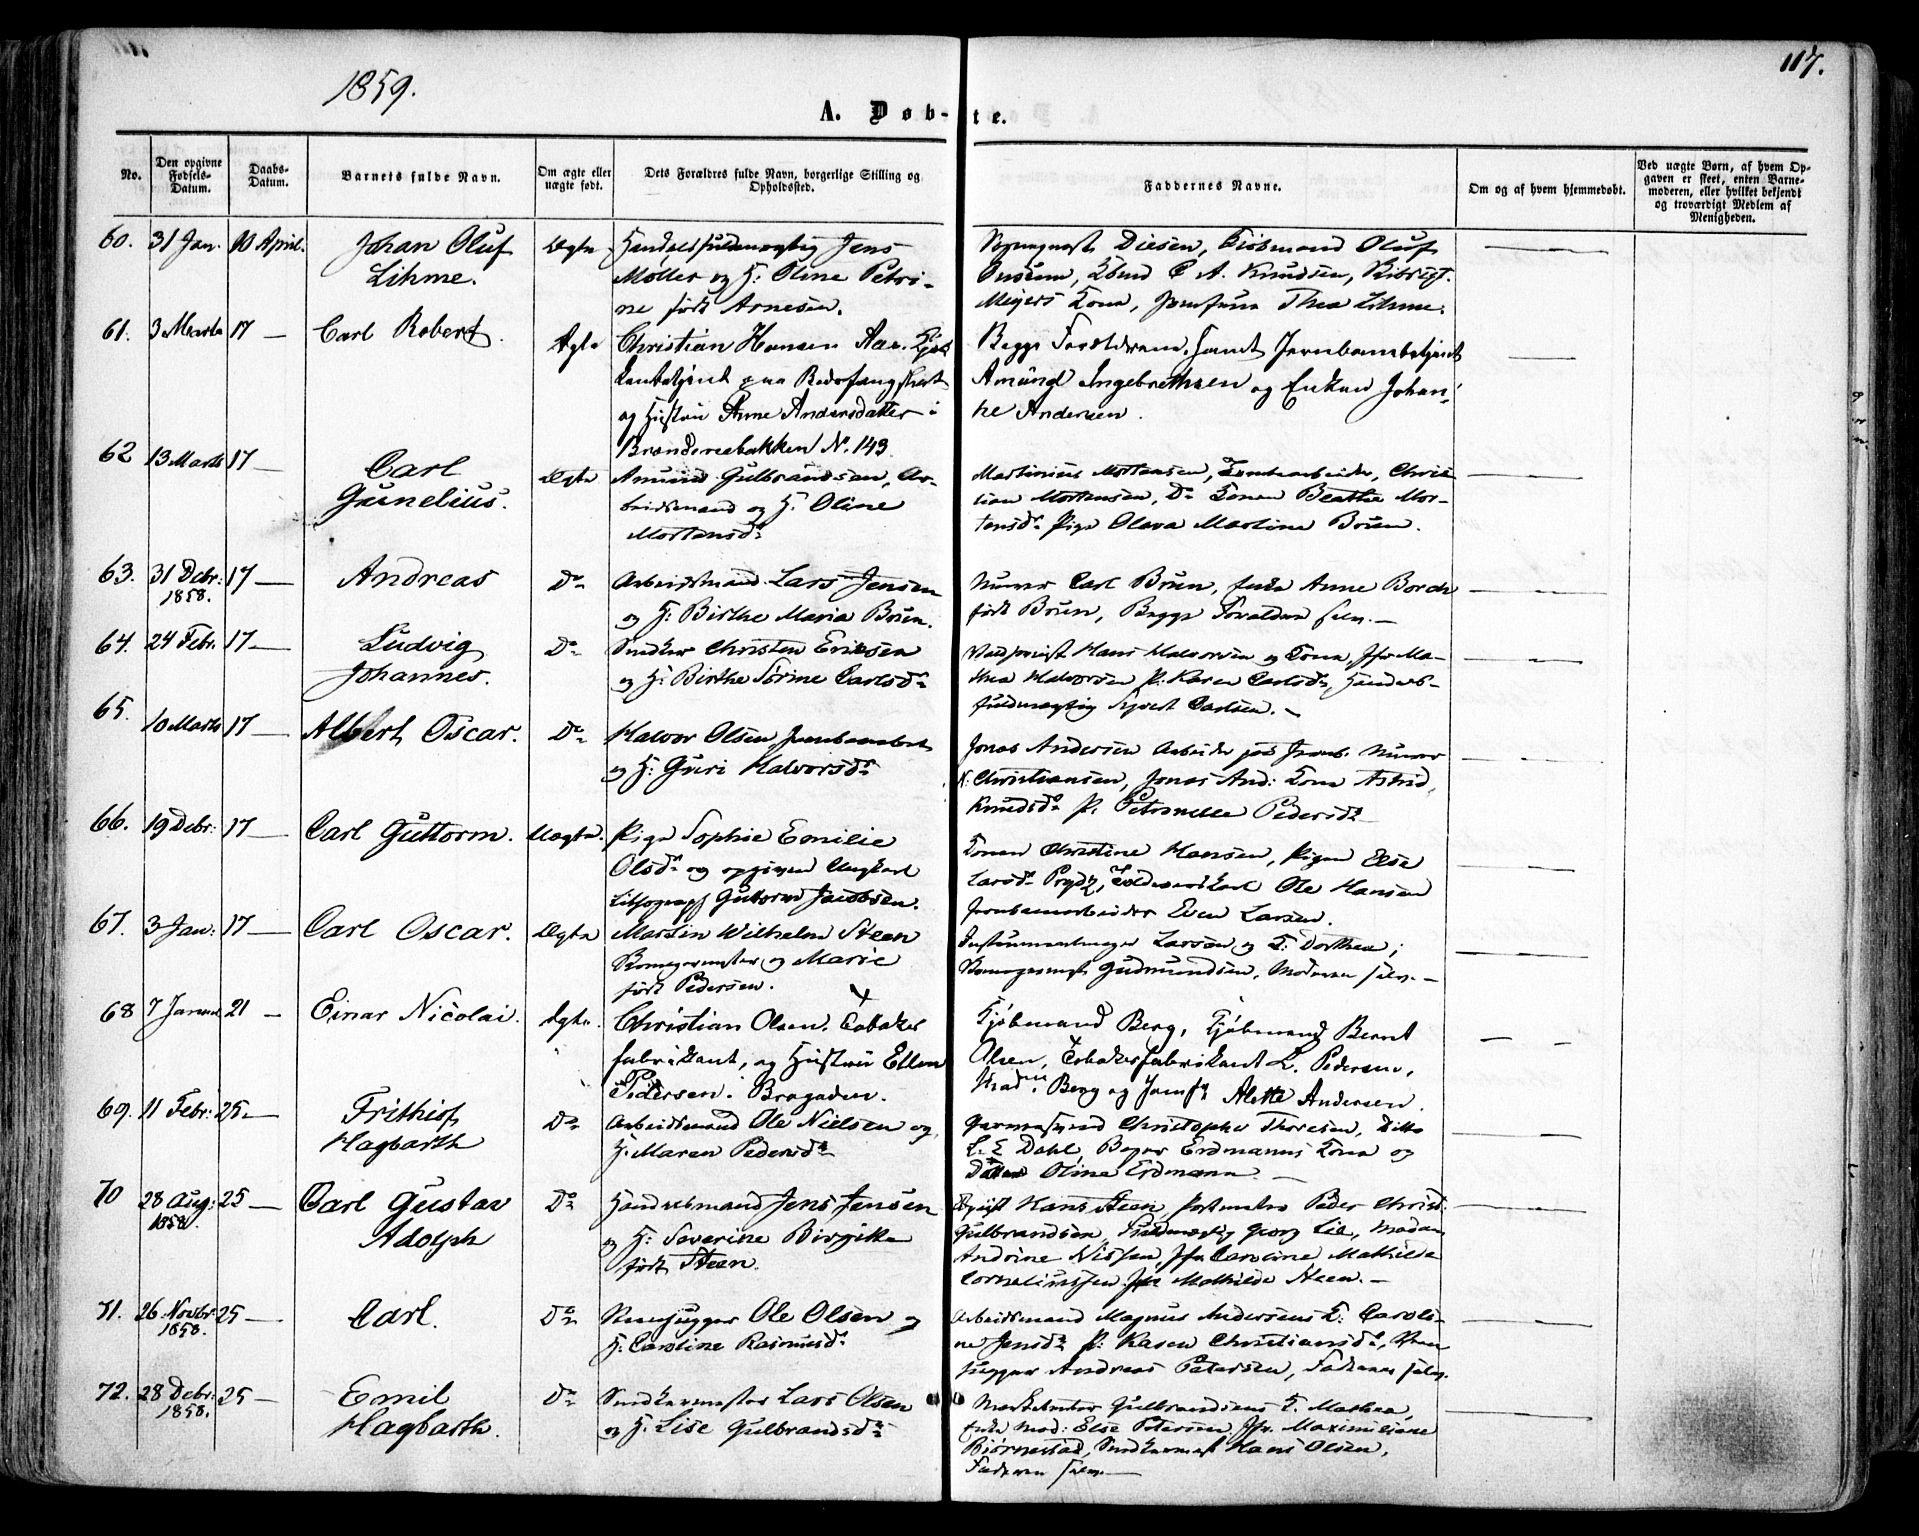 117.
1859.
A. Døb- te.
No.
Den opgivne Fødsels-Datum.
Daabs-Datum.
Barnets fulde Navn.
Om ægte eller uægte født.
Dets Forældres fulde Navn, borgerlige Stilling og Opholdssted.
Faddernes Navne.
Om og af hvem hjemmedøbt.
Ved uægte Børn, af hvem Opgaven er skeet, enten Barnemoderen, eller hvilket bekjendt og troværdigt Medlem af Menigheden.
60. 31 Jan. 10 April. Johan Oluf Ægte Handelsfuldmægtig Jens Diesen, Kjøbmand Oluf
Lihme. Møller og H: Oline Petri- C A. Knudsen,
ne født Arnesen. Meyers Kone, Jomfru Thea Lihme.
61. 3 Marts 17 — Carl Robert. Ægte Christian Hansen Begge Forældrene, samt Jernbanebetjent
paa Bodsfængslet Amund Ingebrethsen og Enken Johan-
og Hustru Anne Andersdatter i ne Andersen.
No. 143
62 13 Marts 17 — Carl Ægte Amund Gulbrandsen, Ar- Martinius Mortensen, Chris-
Gurnelius. beidsmand og H. Oline tian Mortensen, Do Konen Beathe Mor-
Mortensdr tensdr Pige Olava Martine Bruun.
63. 31 Debr: 1858. 17 — Andreas Do Arbeidsmand Lars Jensen Murer Carl Bruun, Enke Anne Borch
og H: Birthe Maria Bruun. født Bruun, Begge Forældre selv. —
64. 24 Febr. 17 — Ludvig Do Snedker Christen Ericsen Hans Halvorsen og Kone, Jfr Ma-
Johannes. og H: Birthe Sørine Carlsdr thea Halvorsen P. Karen Carlsdr, Handels-
fuldmægtig Carlsen. —
65. 10 Marts 17 — Albert Oscar. Do Halvor Olsen Jonas Andersen Arbeider Murer
og H: Guri Halvorsdr Christiansen, Jonas And: Kone Astrid
Knudsdr P. Petronelle Pedersdr
66. 19 Debr: 17 — Carl Guttorm. Uægte. Pige Sophie Emilie Konen Christine Hansen, Pigen Else
Olsdr og opgiven Ungkarl Larsdr Ole Hansen
Lithograph Guttorm Jacobsen. Jernbanearbeider Even Larsen.
67. 3 Jan: 17 — Carl Oscar. Ægte Martin Wilhelm Steen Instrumentmager Larsen og K: Dorthea;
og Marie Gudmundsen, Moderen selv. —
født Pedersen.
68 7 Januar 21 — Einar Nicolai. Ægte. Christian Olsen. Tobaks Kjøbmand Berg, Kjøbmand Bernt
fabrikant, og Hustru Ellen Olsen, Tobaksfabrikant L. Pedersen,
Pedersen. Brogaden. Mad: Berg og Jomfr Alette Andersen.
69. 11 Febr: 25 — Frithiof Do Arbeidsmand Ole Nielsen og Christopher Thoresen, Ditto
Hagbarth H. Maren Pedersdr Dahl, Bager Erdmanns Kone og
Datter Oline Erdmann —
70 28 Aug: 1858. 25 — Carl Gustav Do Handelsmand Jens Jensen Hans Steen Peder Christ.
Adolph og H: Severine Birgitte Gulbrandsen, Fuldmægtig Georg Lie, Madam
født Steen. Andrine Nissen, Jfr Caroline Mathilde
Corneliussen Jfr Mathilde Steen. —
71. 26 Novbr: 1858. 25 — Carl. Do Stenhugger Ole Olsen og Arbeidsmand Magnus Andersens K: Caroli-
H. Caroline Rasmusdr ne Jensdr P: Karen Christiansdr, Sten
hugger Andreas Petersen, Faderen selv.
72. 28 Debr: 1858. 25 — Emil Do Snedkermester Lars Olsen Gulbrandsens K. Mathea,
Hagbarth. og H. Lise Gulbrandsdr Enke Mad: Else Petersen, Jfr. Maximiliane
Bjørnestad, Snedkermest Hans Olsen,
Faderen selv. —